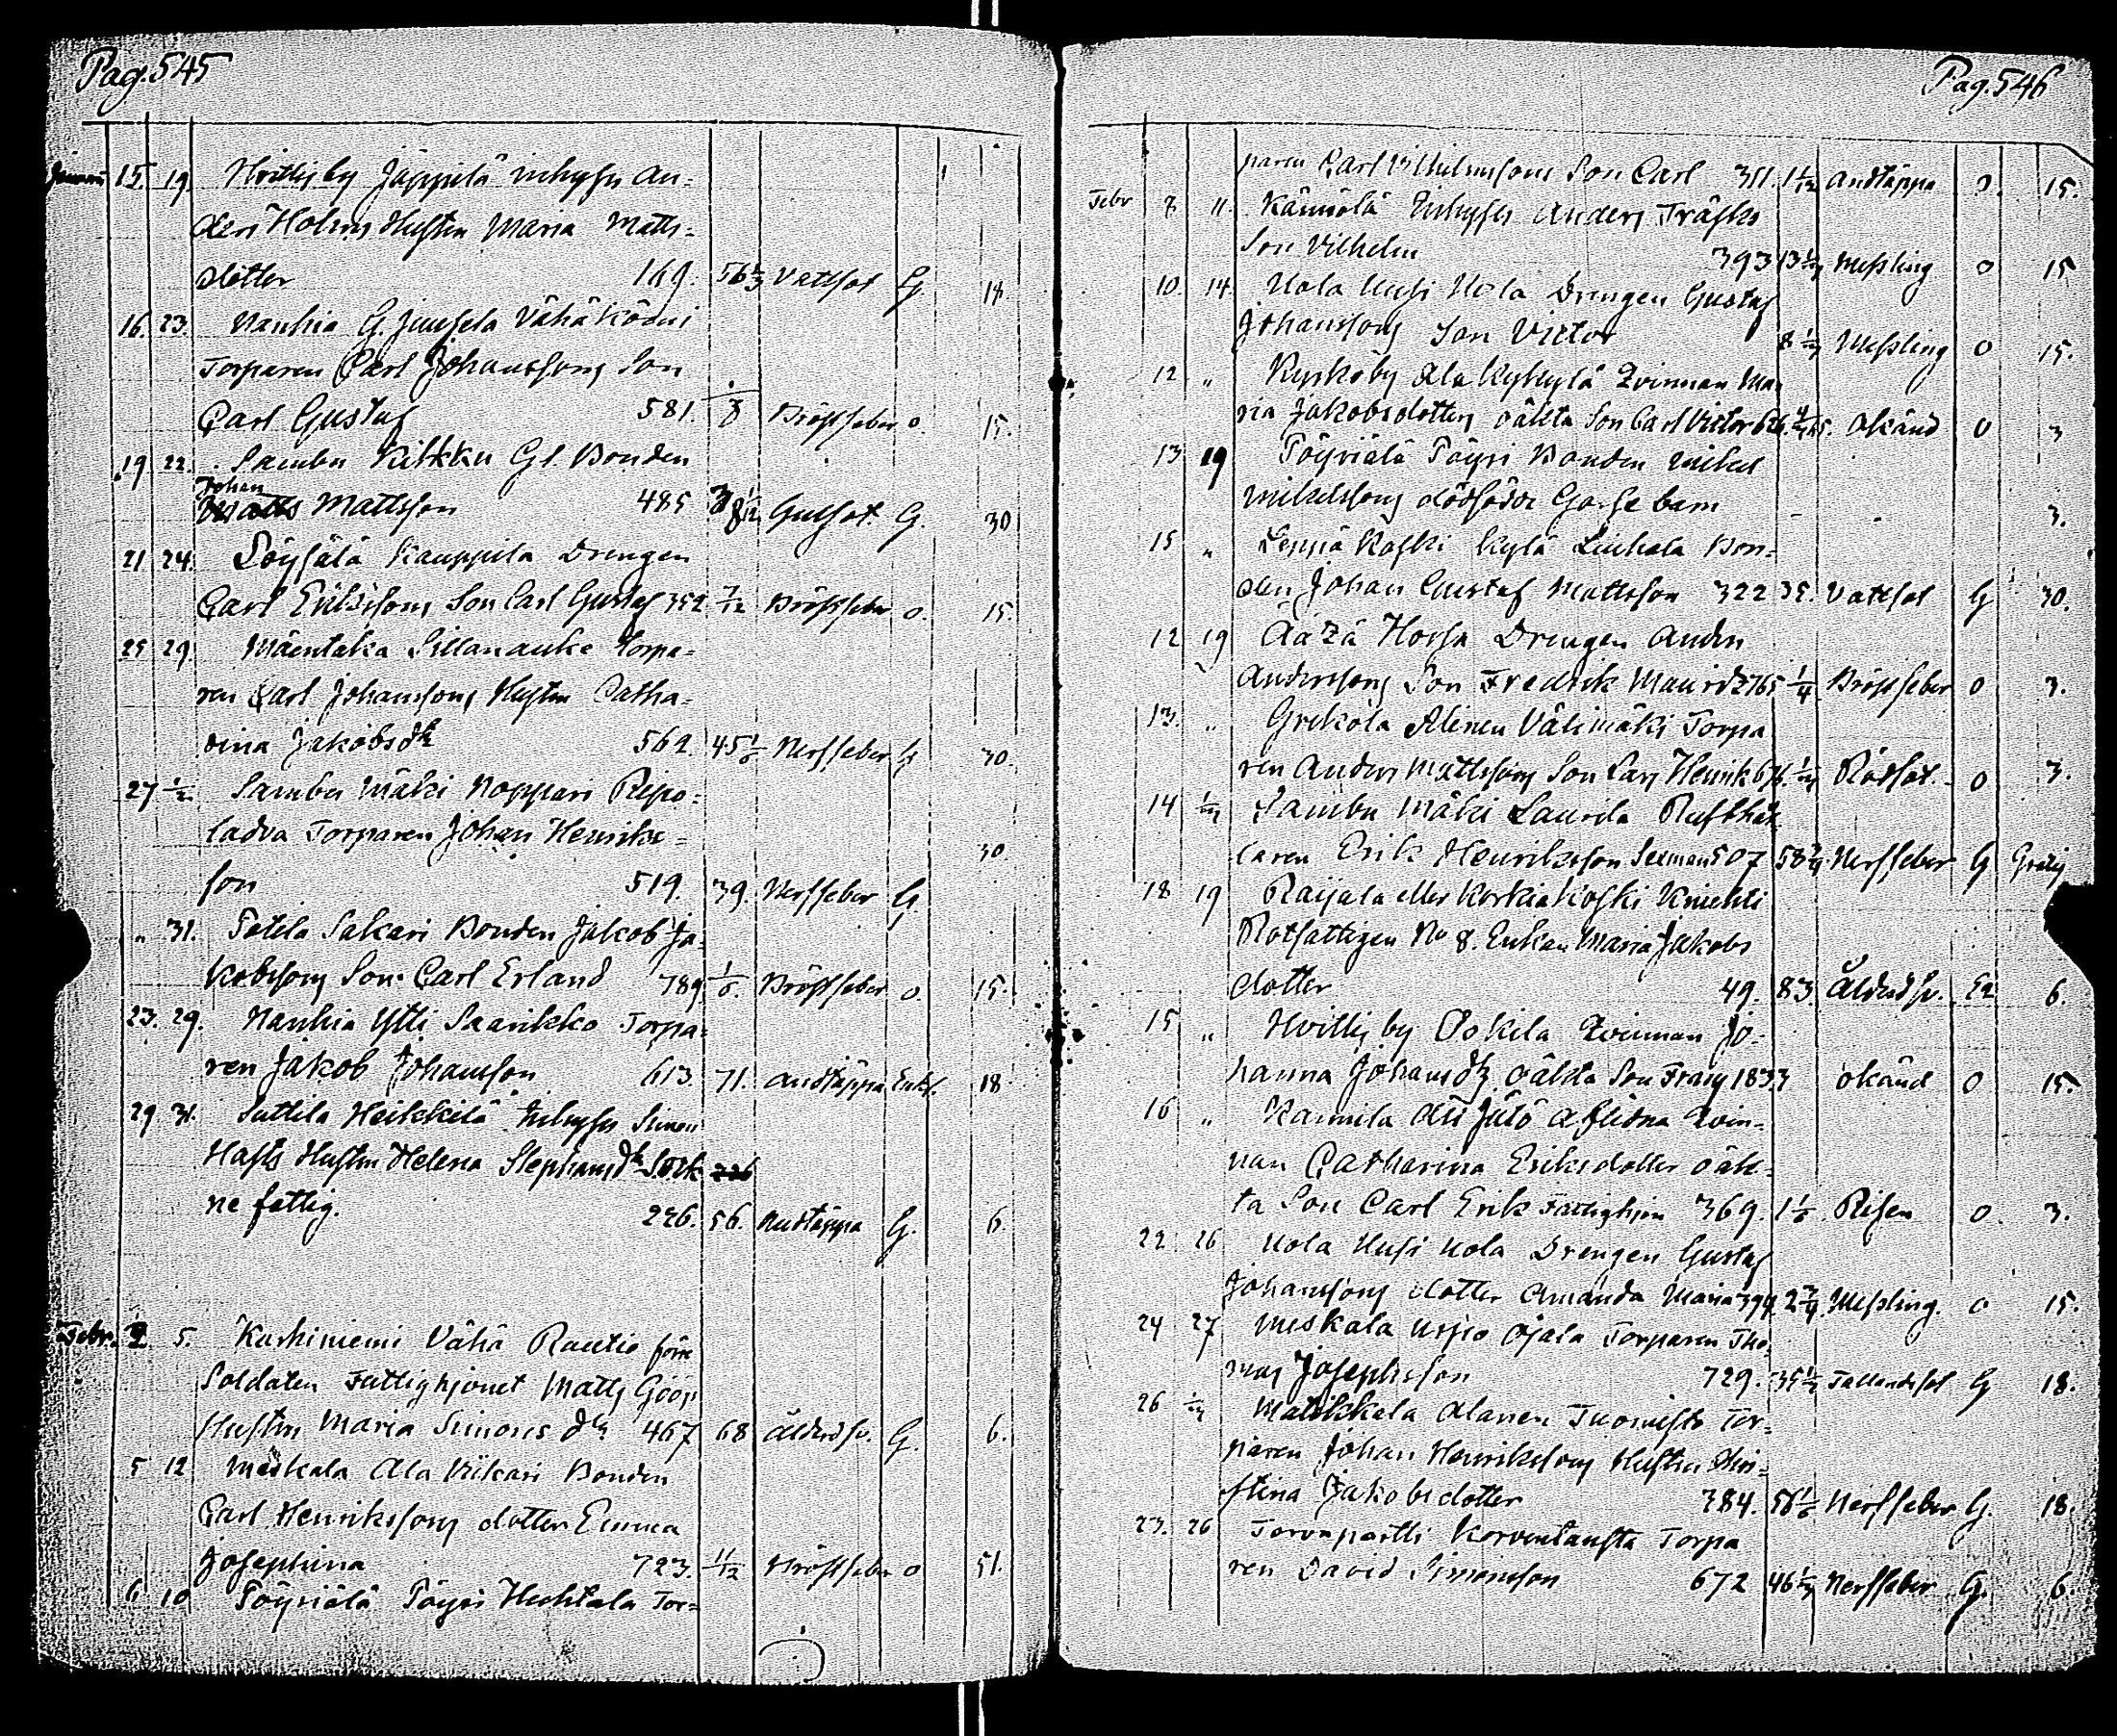 Pag. 545
Januari 15. 19. Hvittisby Jäppilä inhyses An-
ders Holms Hustru Maria Matts-
dotter 169. 56 1/3 Vattsot G. 18.
16. 23. Vanhia G. Juusela Vähäködni
Torparen Carl Johanssons Son
Carl Gustaf 581. Bröstfeber o. 15.
19. 22. Sambu Kilkku Gl. Bonden
Johan
Mattsson 485 Gulsot. G. 30
21 24. Löysälä Kauppila Drengen
Carl Erikssons Son Carl Gustaf 352 7/12 Bröstfeber o. 15.
25 29. Mäentaka Sillanauke Torpa-
ren Carl Johanssons Hustru Catha-
rina Jakobsdtr 562. 45 1/6 Nerffeber G 30.
27 Sambu Mäki Noppari Repo-
ladva Torparen Johan Henriks- 30.
son 519. 39. Nerffeber G.
„ 31. Potila Sakari Bonden Jakob Ja-
kobssons Son Carl Erland 789. 1/6. Bröstfeber o. 15.
23. 29. Vanhia Ytti Saarikko Torpa-
ren Jakob Johansson 613. 71. Andtäppa Enkl. 18
29. 31. Suttila Heikkilä Inhyses Simon
Hasts Hustru Helena Stephansdtr Sock
ne fattig. 226. 56. Andtäppa G. 6.
Febr. 2 5. Karhiniemi Vähä Rautio förre
Soldaten Fattighjonet Matts Göös
Hustru Maria Simonsdtr 467 68 Ålderdsv. G. 6.
5 12 Meskala Ala Kiikari Bonden
Carl Henrikssons dotter Emma
Josephina 723. 11/12 Bröstfeber o 51.
6 10 Pöyriälä Pöyri Hechtala Tor-
Pag. 546
paren Carl Vilhelmssons Son Carl 351. 1 1/12 Andtäppa o. 15.
Febr 7 11. Kännölä Inhyses Anders Träsks
Son Vilhelm 393 Messling o 15
10. 14. Nola Uusi Nola Drengen Gustaf
Johanssons Son Victor Messling o 15.
12. „ Kyrkoby Ala Kyhkylä Qvinnan Ma-
ria Jakobsdotters oäkta Son Carl Victor Okänd o 3
13. 19 Pöyriälä Pöyri Bonden Mikel
Mikelssons dödfödde Gosse barn 3.
15 „ Leppä Koski Kylä Liuhala Bon-
den Johan Gustaf Mattsson 322 35. Vattsot G 30.
12 19 Äätzä Horsa Drengen Anders
Anderssons Son Fredrik Maurid 2765 1/4 Bröstfeber o 3.
13. „ Greköla Alenen Välimäki Torpa
ren Anders Mattssons Son Lars Henrik Rödsot. o 3.
14 Sambu Mäki Laurila Rusthål-
laren Erik Henriksson Seeman 507 Nerffeber G Gratis
18 19 Raijala eller Korkiakoski Knichti
Rotfattigen No 8. Enkan Maria Jakobs
dotter 49. 83. Ålderdsv. En 6.
15 „ Hvittisby Pokila Qvinnan Jo-
hanna Johansdtrs oäkta Son Frans okänd o 15.
16 „ Karmila Ali Jutö Afledna Qvin-
nan Catharina Eriksdotter oäk-
ta Son Carl Erik Fattighjon 369. 1 1/6 Risen o. 3.
22 26 Nola Uusi Nola Drengen Gustaf
Johanssons dotter Amanda Maria 394. Messling. o 15.
24 27 Meskala Uspo Ojala Torparen Tho-
mas Josephsson 729. Fallandesot G 18.
26 Matikkala Alanen Tuomisto Tor-
paren Johan Henrikssons Hustru Chri-
stina Jakobsdotter 384. 56 1/6 Nerffeber G. 18.
23. 26 Torvapartti Korventausta Torpa
ren David Simonsson 672 Nerffeber G. 6.